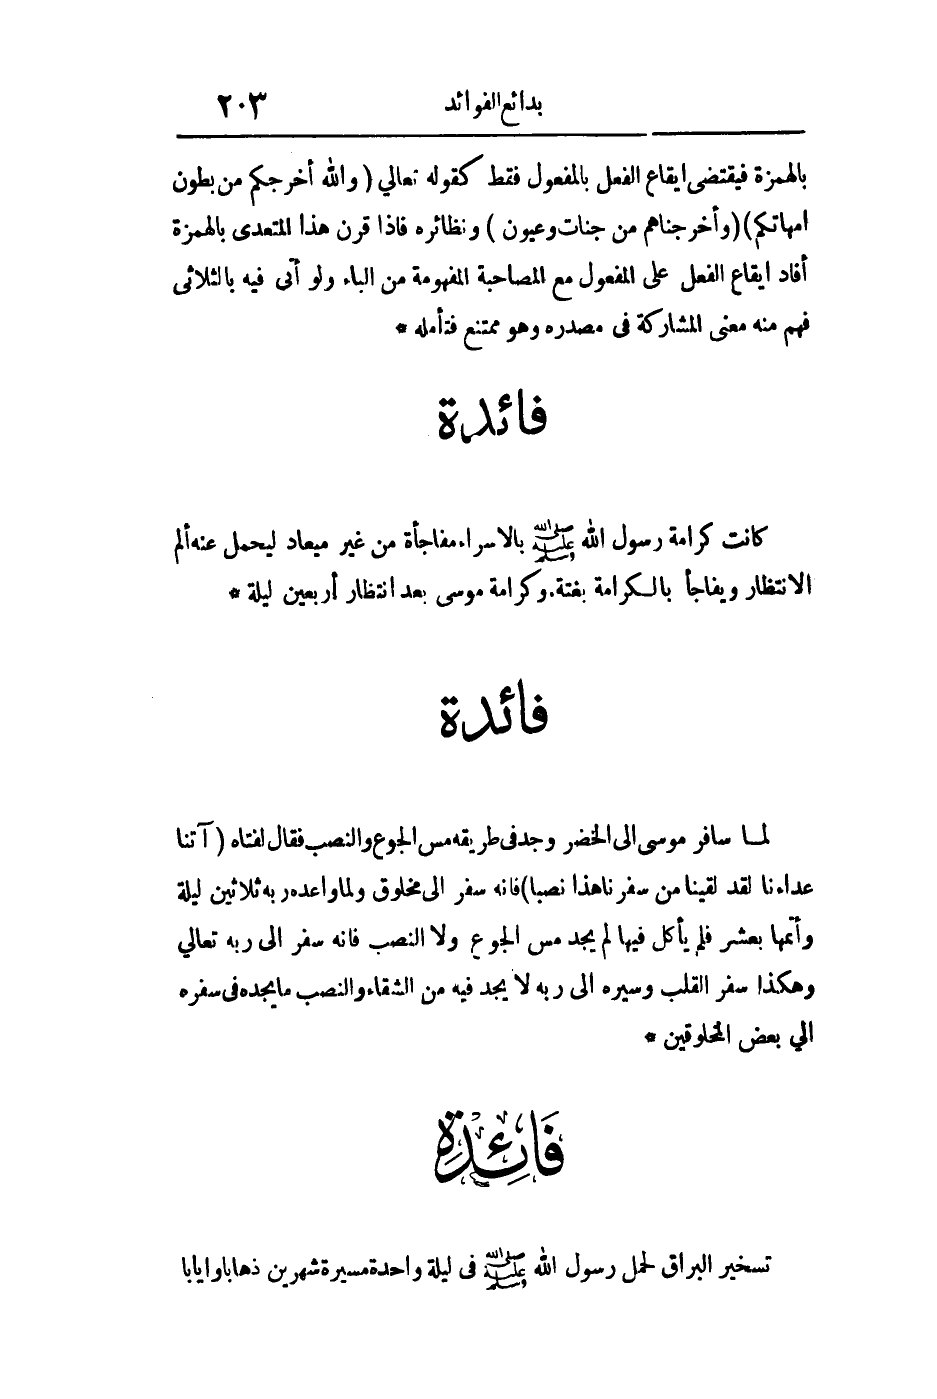 بدائع الفوائد ٢٠٣
بالهمزة فيقتضى ايقاع الفعل بالمفعول فقط كقوله تعالي ( والله أخرجكم من بطون
امهاتكم)(وأخرجناهم من جنات وعيون ) ونظائره فاذا قرن هذا المتعدى بالهمزة
أفاد ايقاع الفعل على المفعول مع المصاحبة المفهومة من الباء ولو أتى فيه بالثلاثى
فهم منه معنى المشاركة فى مصدره وهو ممتنع فتأمله *
فائدة
كانت كرامة رسول الله ﷺ بالاسراء مفاجأة من غير ميعاد ليحمل عنه ألم
الانتظار ويفاجأ بالكرامة بغتة. وكرامة موسى بعد انتظار أربعين ليلة *
فائدة
لما سافر موسى الى الخضر وجد فى طريقه مس الجوع والنصب فقال لفتاه ( آتنا
غداءنا لقد لقينا من سفرنا هذا نصبا) فانه سفر الى مخلوق ولما واعده ربه ثلاثين ليلة
وأتمها بعشر فلم يأكل فيها لم يجد مس الجوع ولا النصب فانه سفر الى ربه تعالي
وهكذا سفر القلب وسيره الى ربه لا يجد فيه من الشقاء والنصب ما يجده فى سفره
الي بعض المخلوقين *
فَائِدَة
تسخير البراق لحمل رسول الله ﷺ فى ليلة واحدة مسيرة شهرين ذهابا وايابا